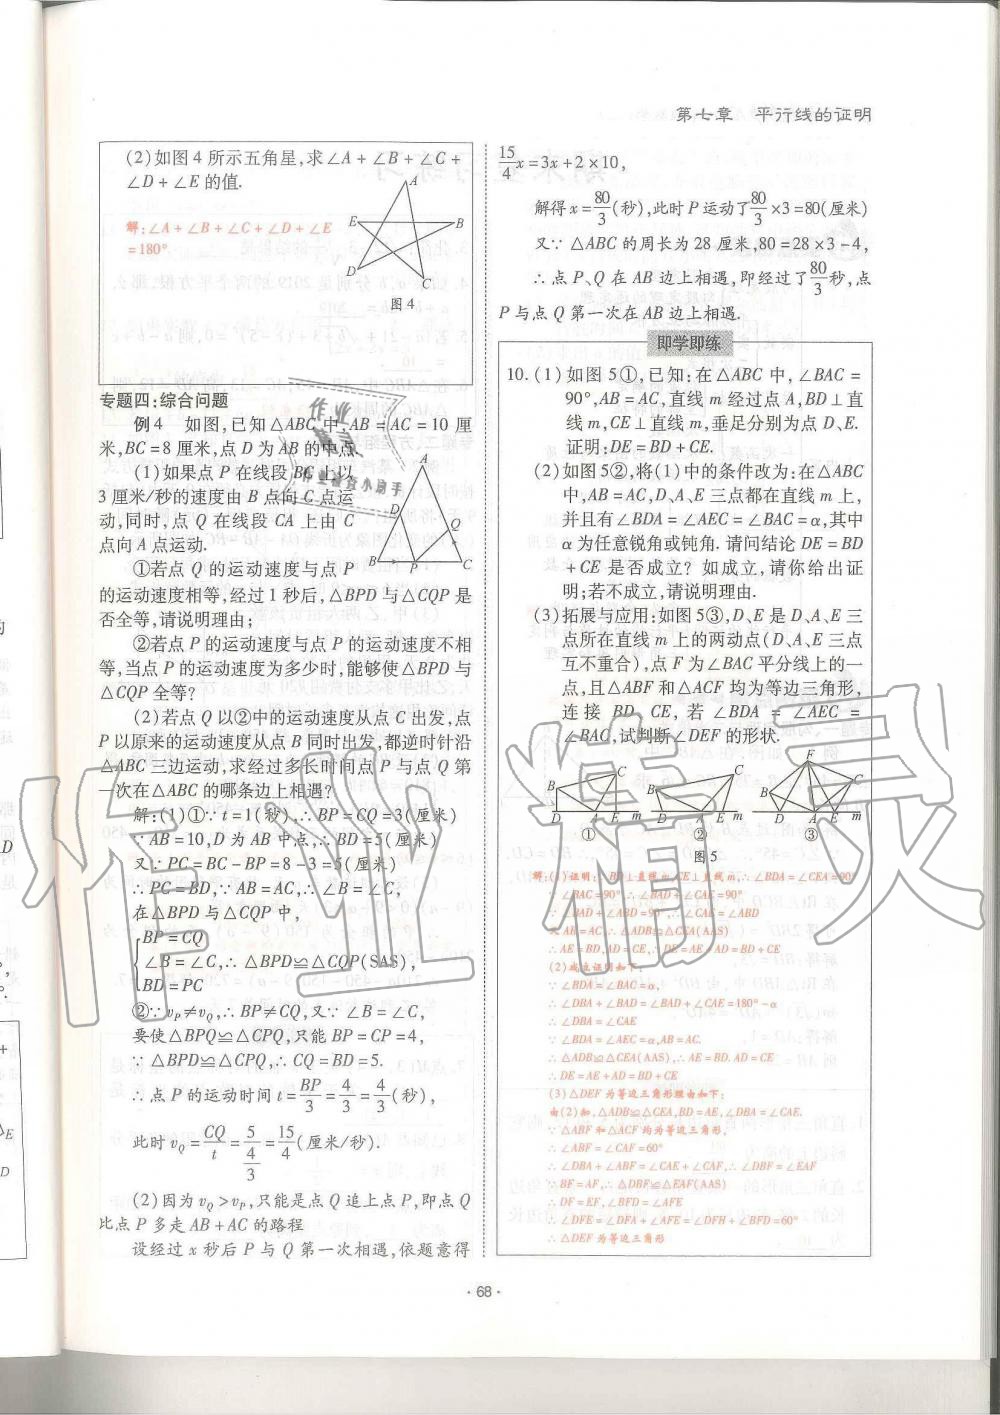 第七章 平行线的证明
(2)如图4所示五角星,求∠A+∠B+∠C+
∠D+∠E的值.
解:∠A+∠B+∠C+∠D+∠E
=180°.
A
E
B
D
C
图4
专题四:综合问题
例4 如图,已知△ABC中,AB=AC=10厘
米,BC=8厘米,点D为AB的中点.
(1)如果点P在线段BC上以
3厘米/秒的速度由B点向C点运
动,同时,点Q在线段CA上由C
点向A点运动.
①若点Q的运动速度与点P
的运动速度相等,经过1秒后,△BPD与△CQP是
否全等,请说明理由;
②若点P的运动速度与点Q的运动速度不相
等,当点P的运动速度为多少时,能够使△BPD与
△CQP全等?
(2)若点Q以②中的运动速度从点C出发,点
P以原来的运动速度从点B同时出发,都逆时针沿
△ABC三边运动,求经过多长时间点P与点Q第
一次在△ABC的哪条边上相遇?
A
D
Q
B
P
C
解:(1)①∵t=1(秒),∴BP=CQ=3(厘米)
∵AB=10,D为AB中点,∴BD=5(厘米)
又∵PC=BC-BP=8-3=5(厘米)
∴PC=BD,∵AB=AC,∴∠B=∠C,
在△BPD与△CQP中,
BP=CQ
∠B=∠C,∴△BPD≌△CQP(SAS),
BD=PC
②∵vP≠vQ,∴BP≠CQ,又∵∠B=∠C,
要使△BPQ≌△CPQ,只能BP=CP=4,
∵△BPD≌△CPQ,∴CQ=BD=5.
∴点P的运动时间t=BP/3=4/3=4/3(秒),
此时vQ=CQ/t=5/(4/3)=15/4(厘米/秒).
(2)因为vQ>vP,只能是点Q追上点P,即点Q
比点P多走AB+AC的路程
设经过x秒后P与Q第一次相遇,依题意得
15/4x=3x+2×10,
解得x=80/3(秒),此时P运动了80/3×3=80(厘米)
又∵△ABC的周长为28厘米,80=28×3-4,
∴点P、Q在AB边上相遇,即经过了80/3秒,点
P与点Q第一次在AB边上相遇.
即学即练
10.(1)如图5①,已知:在△ABC中,∠BAC=
90°,AB=AC,直线m经过点A,BD⊥直
线m,CE⊥直线m,垂足分别为点D、E.
证明:DE=BD+CE.
(2)如图5②,将(1)中的条件改为:在△ABC
中,AB=AC,D、A、E三点都在直线m上,
并且有∠BDA=∠AEC=∠BAC=α,其中
α为任意锐角或钝角.请问结论DE=BD
+CE是否成立?如成立,请你给出证
明;若不成立,请说明理由.
(3)拓展与应用:如图5③,D、E是D、A、E三
点所在直线m上的两动点(D、A、E三点
互不重合),点F为∠BAC平分线上的一
点,且△ABF和△ACF均为等边三角形,
连接BD、CE,若∠BDA=∠AEC=
∠BAC,试判断△DEF的形状.
B C D A E m
①
B C D A E m
②
F B C D A E m
③
图5
解:(1)证明:∵BD⊥直线m,CE⊥直线m,∴∠BDA=∠CEA=90°
∵∠BAC=90°,∴∠BAD+∠CAE=90°
∵∠BAD+∠ABD=90°,∴∠CAE=∠ABD
又AB=AC,∴△ADB≌△CEA(AAS)
∴AE=BD,AD=CE,∴DE=AE+AD=BD+CE
(2)成立证明如下:
∵∠BDA=∠BAC=α,
∴∠DBA+∠BAD=∠BAD+∠CAE=180°-α
∴∠DBA=∠CAE
∵∠BDA=∠AEC=α,AB=AC.
∴△ADB≌△CEA(AAS),∴AE=BD.AD=CE
∴DE=AE+AD=BD+CE
(3)△DEF为等边三角形理由如下:
由(2)知,△ADB≌△CEA,BD=AE,∠DBA=∠CAE.
∵△ABF和△ACF均为等边三角形,
∴∠ABF=∠CAF=60°
∴∠DBA+∠ABF=∠CAE+∠CAF,∴∠DBF=∠EAF
∵BF=AF,∴△DBF≌△EAF(AAS)
∴DF=EF,∠BFD=∠AFE
∴∠DFE=∠DFA+∠AFE=∠DFH+∠BFD=60°
∴△DEF为等边三角形
·68·
作业精灵
作业
精灵
作业检查小助手